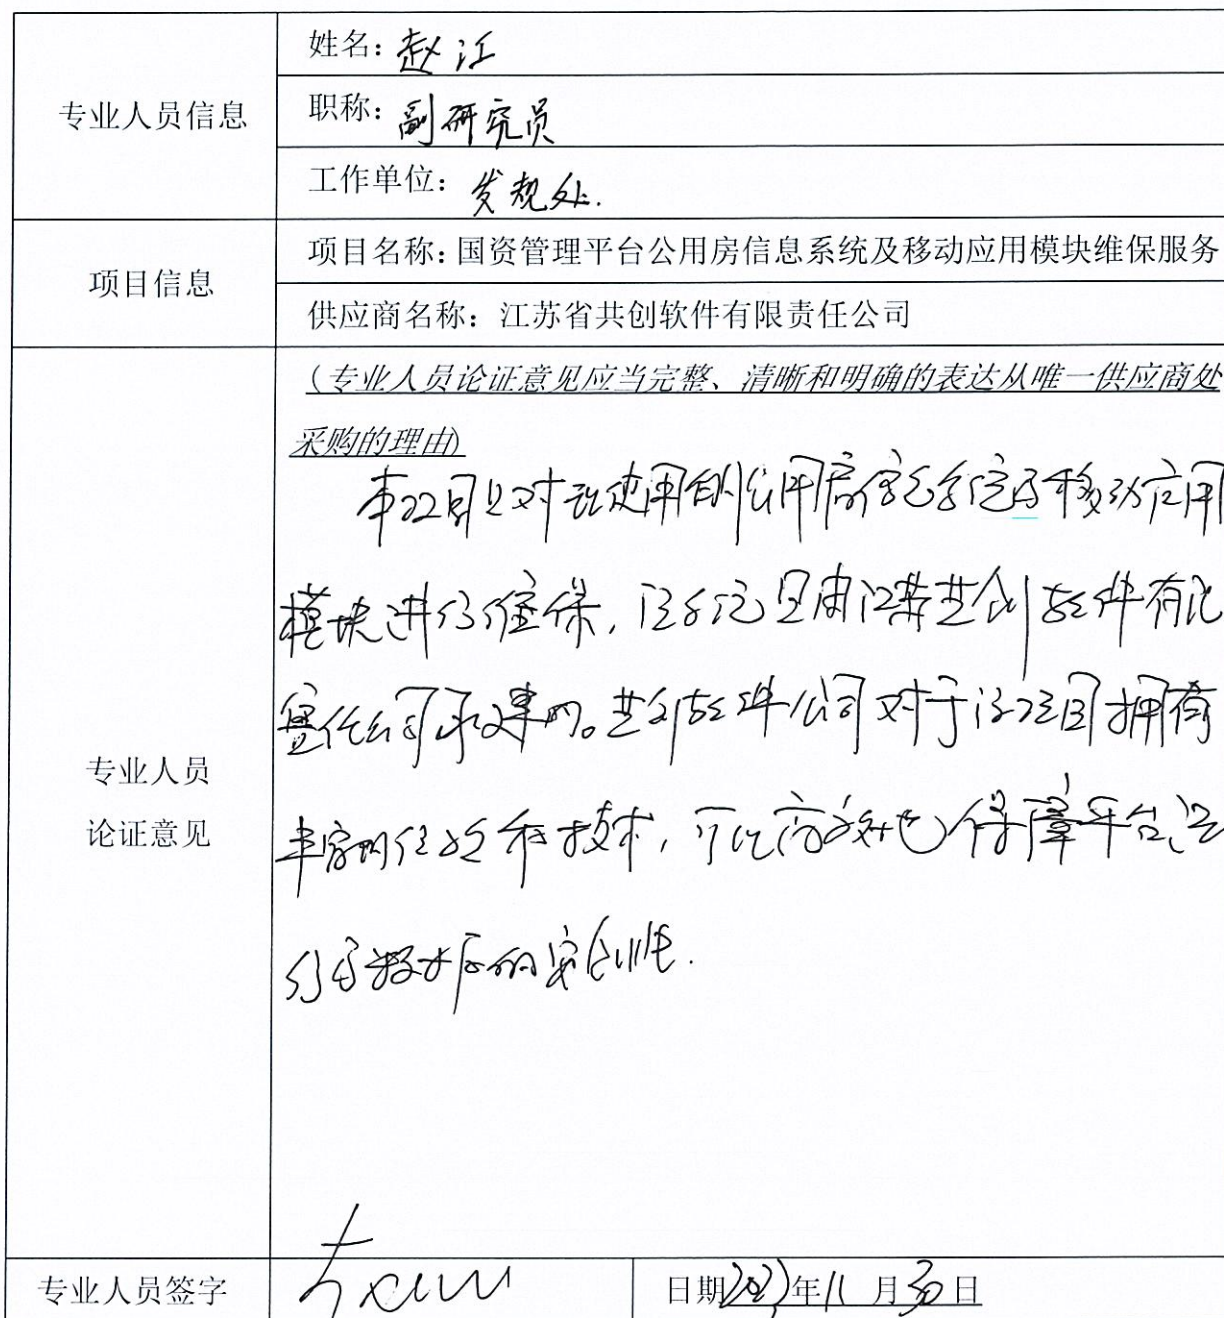 专业人员信息
姓名：赵江
职称：副研究员
工作单位：发规处.
项目信息
项目名称：国资管理平台公用房信息系统及移动应用模块维保服务
供应商名称：江苏省共创软件有限责任公司
专业人员
论证意见
（专业人员论证意见应当完整、清晰和明确的表达从唯一供应商处
采购的理由)
本项目是对现使用的公用房信息系统及移动应用
模块进行维保，该系统是由江苏共创软件有限
责任公司承建的。共创软件公司对于该项目拥有
丰富的经验和技术，可以高效地保障平台运
行与数据的安全性.
专业人员签字
日期 年11月30日